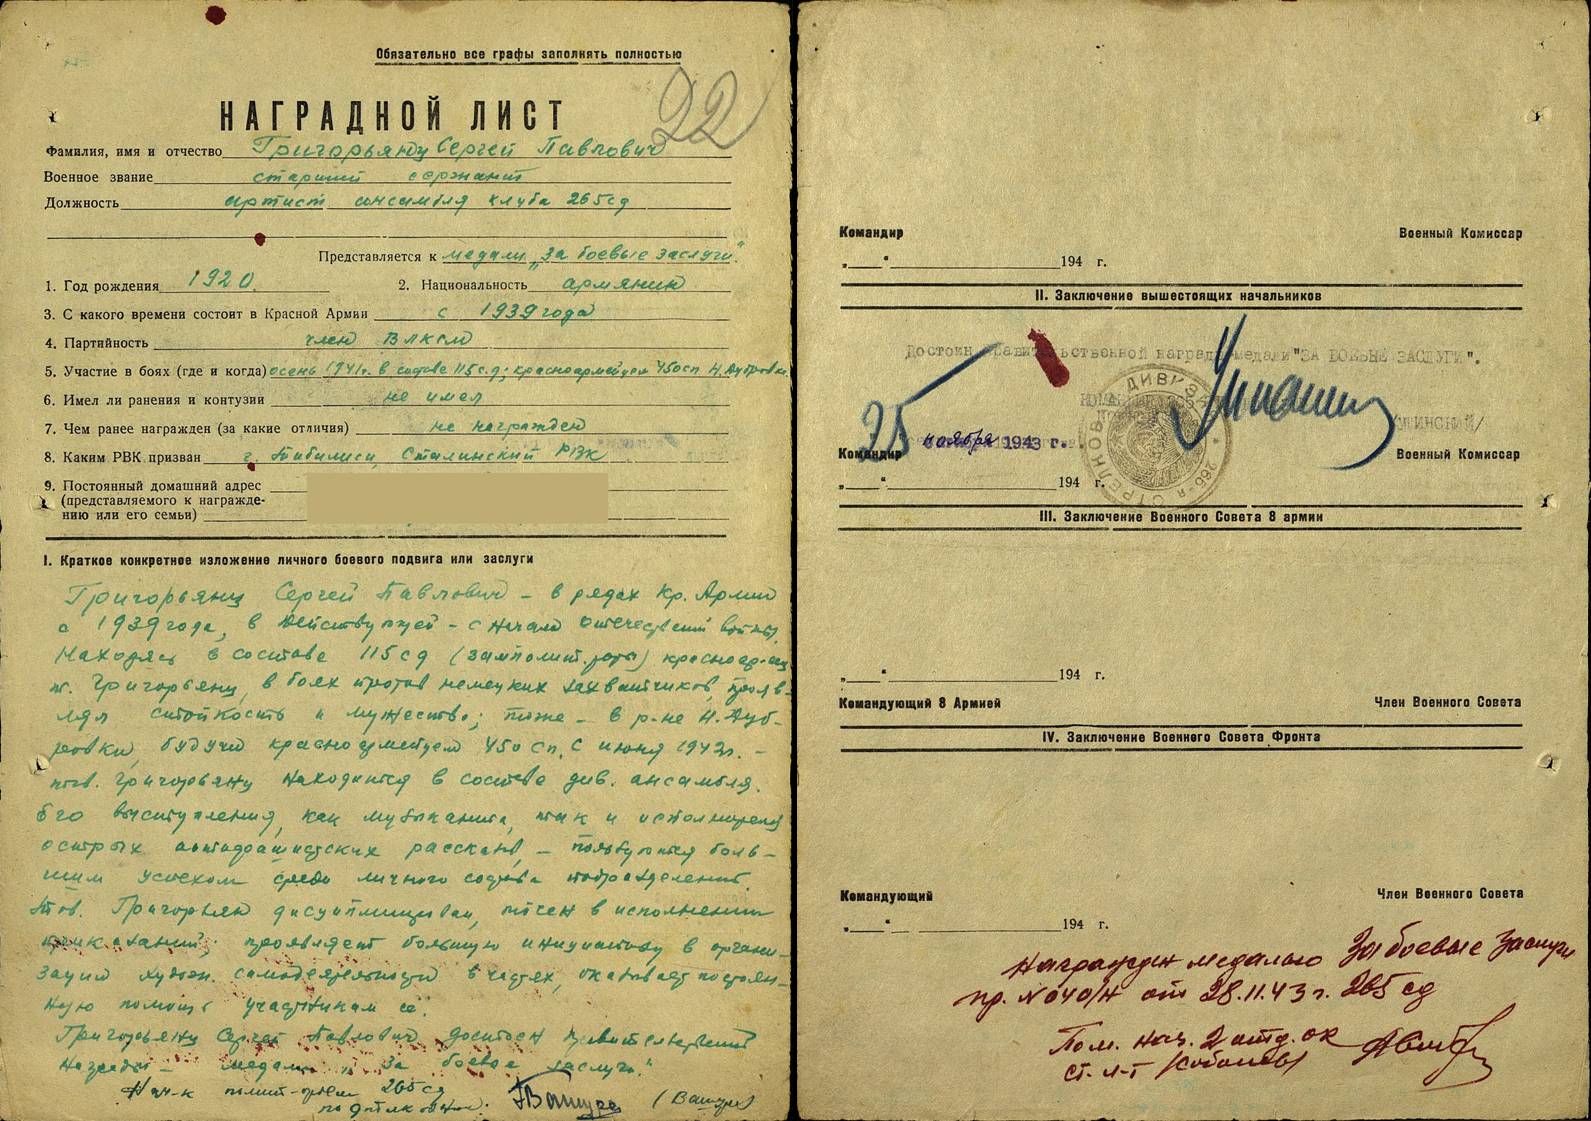 Обязательно все графы заполнять полностью
22
НАГРАДНОЙ ЛИСТ
Фамилия, имя и отчество Григорьянц Сергей Павлович
Военное звание старший сержант
Должность артист ансамбля клуба 265 сд
Представляется к медали „За боевые заслуги“
1. Год рождения 1920.
2. Национальность армянин
3. С какого времени состоит в Красной Армии с 1939 года
4. Партийность член ВЛКСМ
5. Участие в боях (где и когда) осень 1941г. в составе 115 сд; красноармейцем 450 сп Н. Дубровка
6. Имел ли ранения и контузии не имел
7. Чем ранее награжден (за какие отличия) не награжден
8. Каким РВК призван г. Тбилиси, Сталинский РВК
9. Постоянный домашний адрес
(представляемого к награжде-
нию или его семьи)
I. Краткое конкретное изложение личного боевого подвига или заслуги
Григорьянц Сергей Павлович – в рядах Кр. Армии
с 1939 года, в действующей – с начала отечествен. войны.
Находясь в составе 115 сд (замполит. роты)
т. Григорьянц, в боях против немецких захватчиков, прояв-
лял стойкость и мужество; тоже – в р-не Н. Дуб-
ровки, будучи красноармейцем 450 сп. С июня 1942г. –
тов. Григорьянц находится в составе див. ансамбля.
Его выступления, как музыканта, так и исполнителя
острых антифашистских рассказов, – пользуются боль-
шим успехом среди личного состава подразделений.
Тов. Григорьян дисциплинирован, точен в исполнении
приказаний; проявляет большую инициативу в органи-
зации худож. самодеятельности в частях, оказывает постоян-
ную помощь участникам её.
Григорьянц Сергей Павлович достоин правительственной
награды – медали „За боевые заслуги“.
Нач-к полит-отдела 265 сд
подполковник (Ватура)
Командир Военный Комиссар
„ “ 194 г.
II. Заключение вышестоящих начальников
Достоин правительственной награды медали "ЗА БОЕВЫЕ ЗАСЛУГИ".
25 ноября 1943 г.
Командир Военный Комиссар
„ “ 194 г.
III. Заключение Военного Совета 8 армии
„ “ 194 г.
Командующий 8 Армией Член Военного Совета
IV. Заключение Военного Совета Фронта
Командующий Член Военного Совета
„ “ 194 г.
Награжден медалью За боевые заслуги
пр. № 040/н от 28.11.43 г. 265 сд
Пом. нач. 2 отд. ОК
ст. л-т